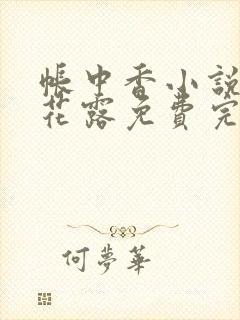 帳中香小說
花露免費完
何夢華